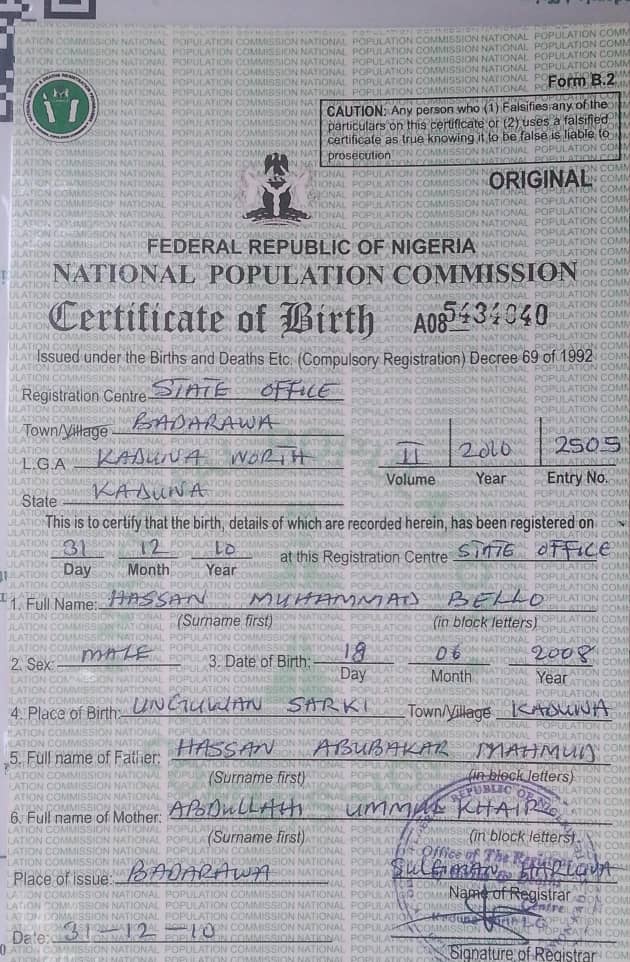 Form B.2
CAUTION: Any person who (1) Falsifies any of the
particulars on this certificate or (2) uses a falsified
certificate as true knowing it to be false is liable to
prosecution
ORIGINAL
FEDERAL REPUBLIC OF NIGERIA
NATIONAL POPULATION COMMISSION
Certificate of Birth A08 5434040
Issued under the Births and Deaths Etc. (Compulsory Registration) Decree 69 of 1992
Registration Centre STATE OFFICE
Town/Village BADARAWA
L.G.A KADUNA NORTH II 2010 2505
Volume Year Entry No.
State KADUNA
This is to certify that the birth, details of which are recorded herein, has been registered on
31 12 10 at this Registration Centre STATE OFFICE
Day Month Year
1. Full Name: HASSAN MUHAMMAD BELLO
(Surname first) (in block letters)
2. Sex: MALE 3. Date of Birth: 18 06 2008
Day Month Year
4. Place of Birth: UNGUWAN SARKI Town/Village KADUNA
5. Full name of Father: HASSAN ABUBAKAR MAHMUD
(Surname first) (in block letters)
6. Full name of Mother: ABDULLAHI UMMUL KHAIR
(Surname first) (in block letters)
Place of issue: BADARAWA
Name of Registrar
Date: 31-12-10
Signature of Registrar